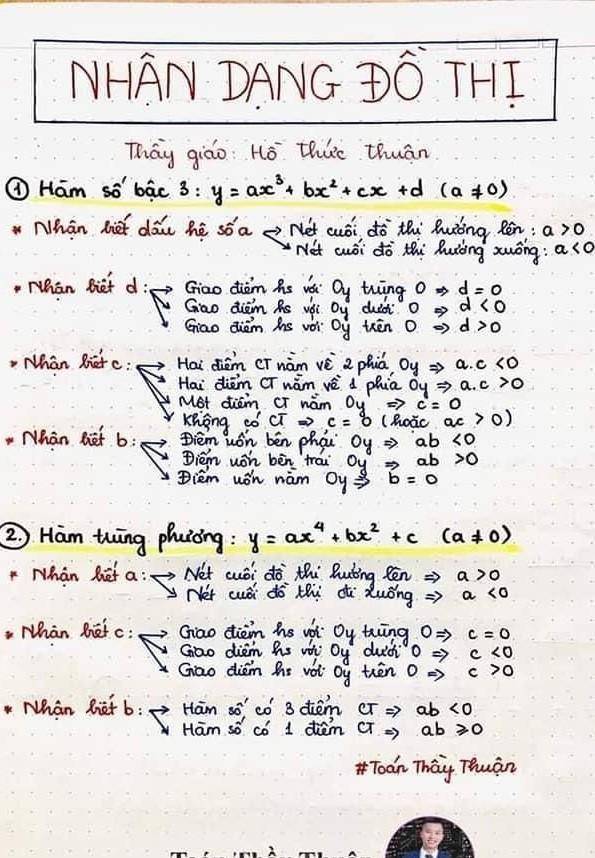 NHẬN DẠNG ĐỒ THỊ
Thầy giáo: Hồ Thức Thuận
① Hàm số bậc 3: y = ax³ + bx² + cx + d (a ≠ 0)
* Nhận biết dấu hệ số a → Nét cuối đồ thị hướng lên : a > 0
→ Nét cuối đồ thị hướng xuống : a < 0
* Nhận biết d : → Giao điểm hs với Oy trùng O ⇒ d = 0
→ Giao điểm hs với Oy dưới O ⇒ d < 0
→ Giao điểm hs với Oy trên O ⇒ d > 0
* Nhận biết c : → Hai điểm CT nằm về 2 phía Oy ⇒ a.c < 0
→ Hai điểm CT nằm về 1 phía Oy ⇒ a.c > 0
→ Một điểm CT nằm Oy ⇒ c = 0
→ Không có CT ⇒ c = 0 (hoặc ac > 0)
* Nhận biết b : → Điểm uốn bên phải Oy ⇒ ab < 0
→ Điểm uốn bên trái Oy ⇒ ab > 0
→ Điểm uốn nằm Oy ⇒ b = 0
②. Hàm trùng phương : y = ax⁴ + bx² + c (a ≠ 0)
* Nhận biết a : → Nét cuối đồ thị hướng lên ⇒ a > 0
→ Nét cuối đồ thị đi xuống ⇒ a < 0
* Nhận biết c : → Giao điểm hs với Oy trùng O ⇒ c = 0
→ Giao điểm hs với Oy dưới O ⇒ c < 0
→ Giao điểm hs với Oy trên O ⇒ c > 0
* Nhận biết b : → Hàm số có 3 điểm CT ⇒ ab < 0
→ Hàm số có 1 điểm CT ⇒ ab ≥ 0
#Toán Thầy Thuận
Toán Thầy Thuận